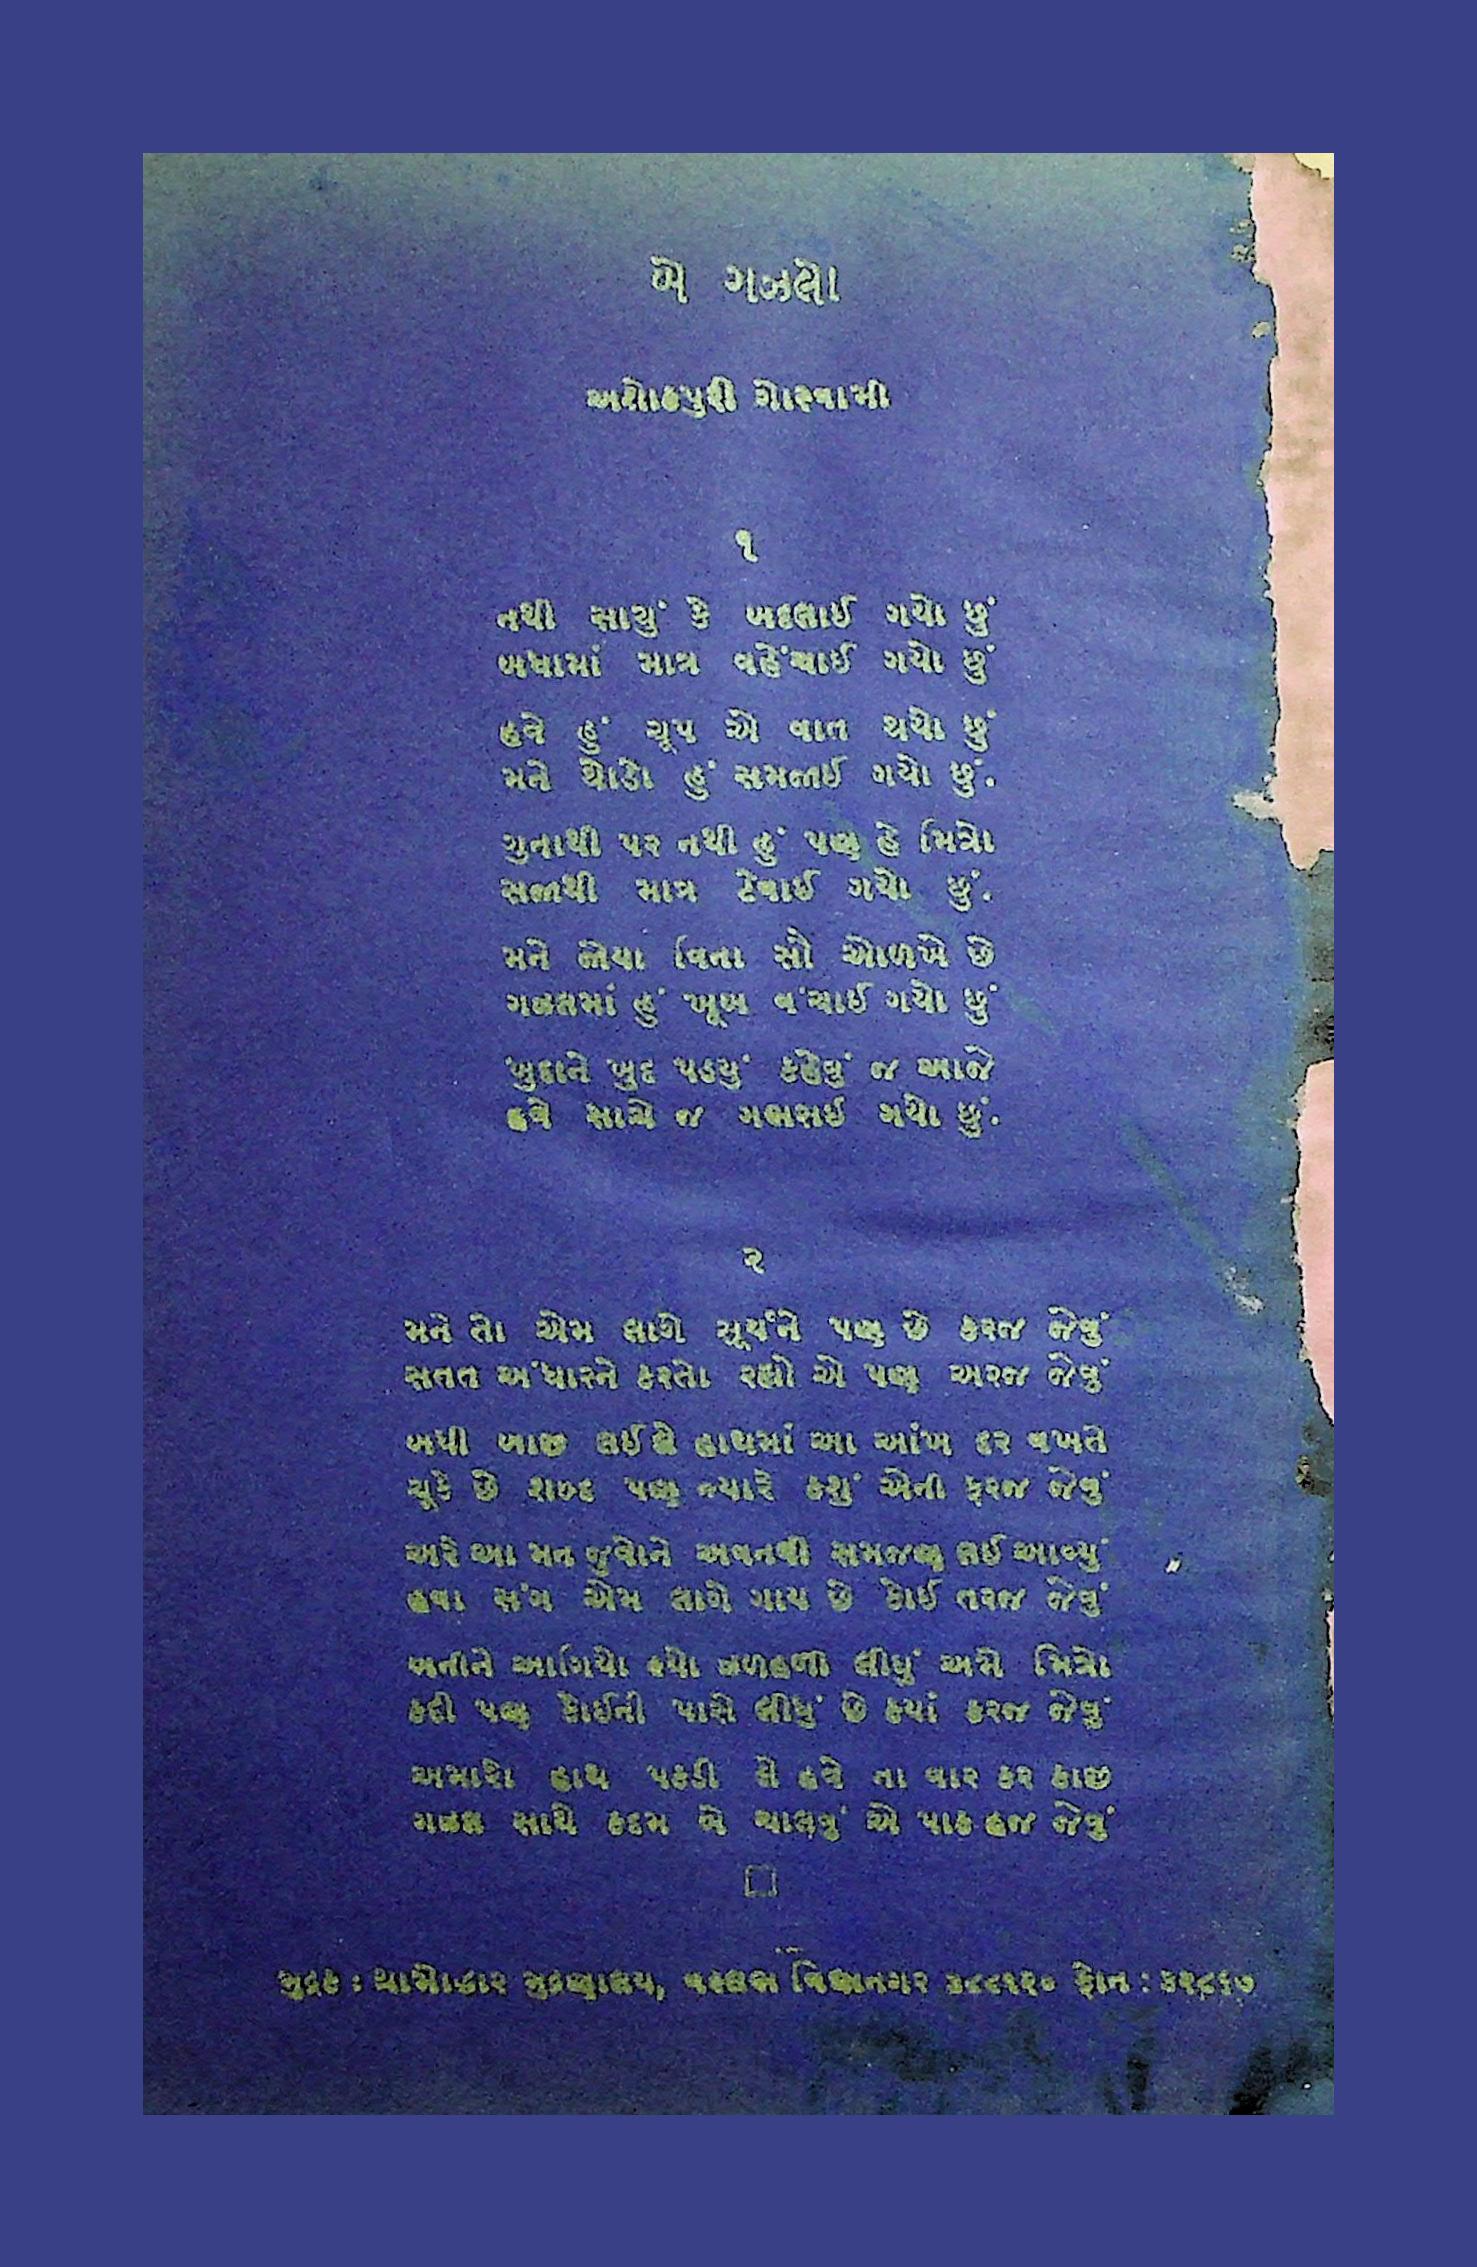 બે ગઝલો
અશોકપુરી ગોસ્વામી
૧
નથી સાચું કે બદલાઈ ગયો છું
બધામાં માત્ર વહેંચાઈ ગયો છું
હવે હું ચૂપ એ વાત થયો છું
મને થોડો હું સમજાઈ ગયો છું.
ગુનાથી પર નથી હું પણ હે મિત્રો
સજાથી માત્ર ટેવાઈ ગયો છું.
મને જોયા વિના સૌ ઓળખે છે
ગઝલમાં હું ખૂબ વંચાઈ ગયો છું
ખુદાને ખુદ પડયું કહેવું જ આજે
હવે સાચે જ ગભરાઈ ગયો છું.
૨
મને તો એમ લાગે સૂર્યને પણ છે કરજ જેવું
સતત અંધારને કરતો રહ્યો એ પણ અરજ જેવું
બધી બાજી લઈ લે હાથમાં આ આંખ દર વખતે
ચૂકે છે શબ્દ પણ જ્યારે કશું એની ફરજ જેવું
અરે આ મન જુવોને અવનવી સમજણ લઈ આવ્યું
હવા સંગ એમ લાગે ગાય છે કોઈ તરજ જેવું
બનીને આગિયો થયો ઝળહળી લીધું અમે મિત્રો
કદી પણ કોઈની પાસે લીધું છે કયાં કરજ જેવું
અમારો હાથ પકડી લે હવે ના વાર કર કાજી
ગઝલ સાથે કદમ બે ચાલવું એ પાક હજ જેવું
મુદ્રક : ચારોત્તર મુદ્રણાલય, વલ્લભ વિદ્યાનગર ૩૮૮૧૨૦ ફોન :